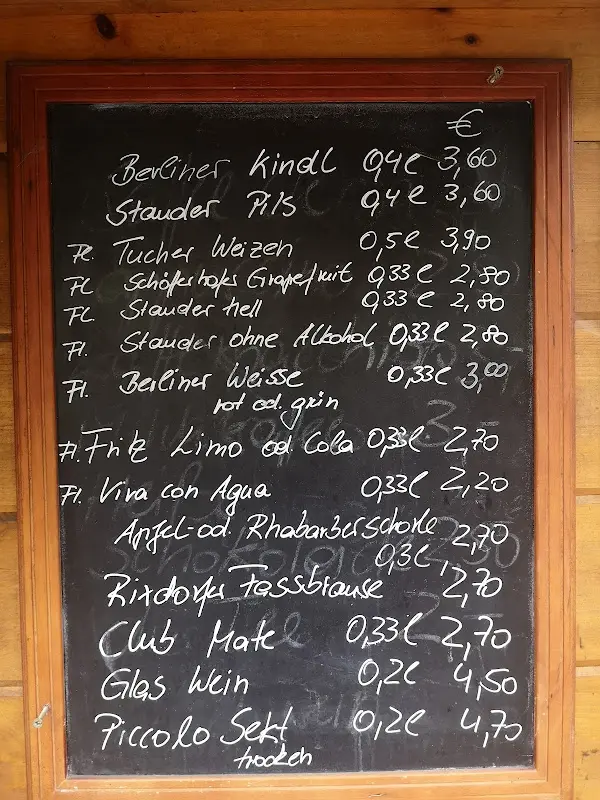 €
Berliner Kindl 0,4l 3,60
Stauder Pils 0,4l 3,60
Fl. Tucher Weizen 0,5l 3,90
Fl. Schöfferhofer Grapefruit 0,33l 2,80
Fl. Stauder hell 0,33l 2,80
Fl. Stauder ohne Alkohol 0,33l 2,80
Fl. Berliner Weisse 0,33l 3,00
rot od. grün
Fl. Fritz Limo od. Cola 0,33l 2,70
Fl. Viva con Agua 0,33l 2,20
Apfel- od. Rhabarberschorle 2,70
0,3l
Rixdorfer Fassbrause 2,70
Club Mate 0,33l 2,70
Glas Wein 0,2l 4,50
Piccolo Sekt 0,2l 4,70
trocken